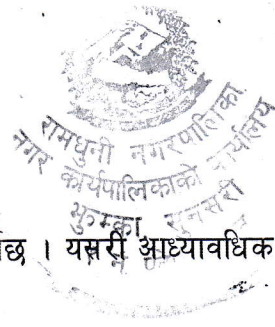 रामधुनी नगरपालिका
नगर कार्यपालिकाको कार्यालय
झुम्का, सुनसरी
छ । यसरी आध्यावधिक